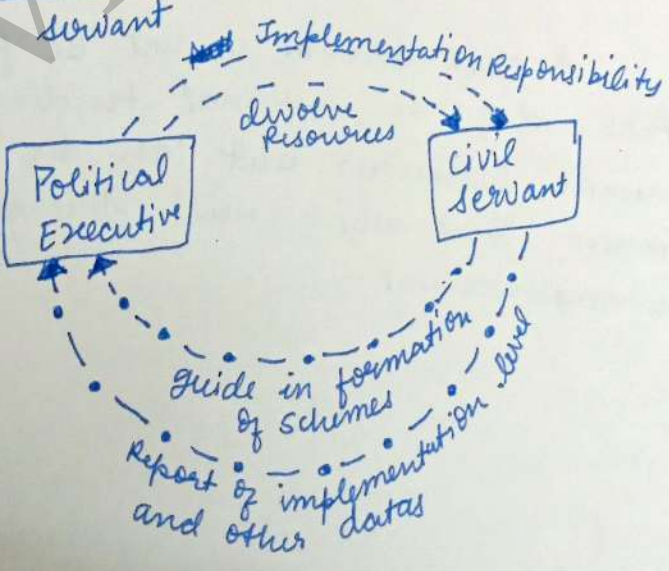 servant
Implementation Responsibility
devolve
Resources
Political
Executive
Civil
servant
guide in formation
of schemes
Report of implementation level
and other datas